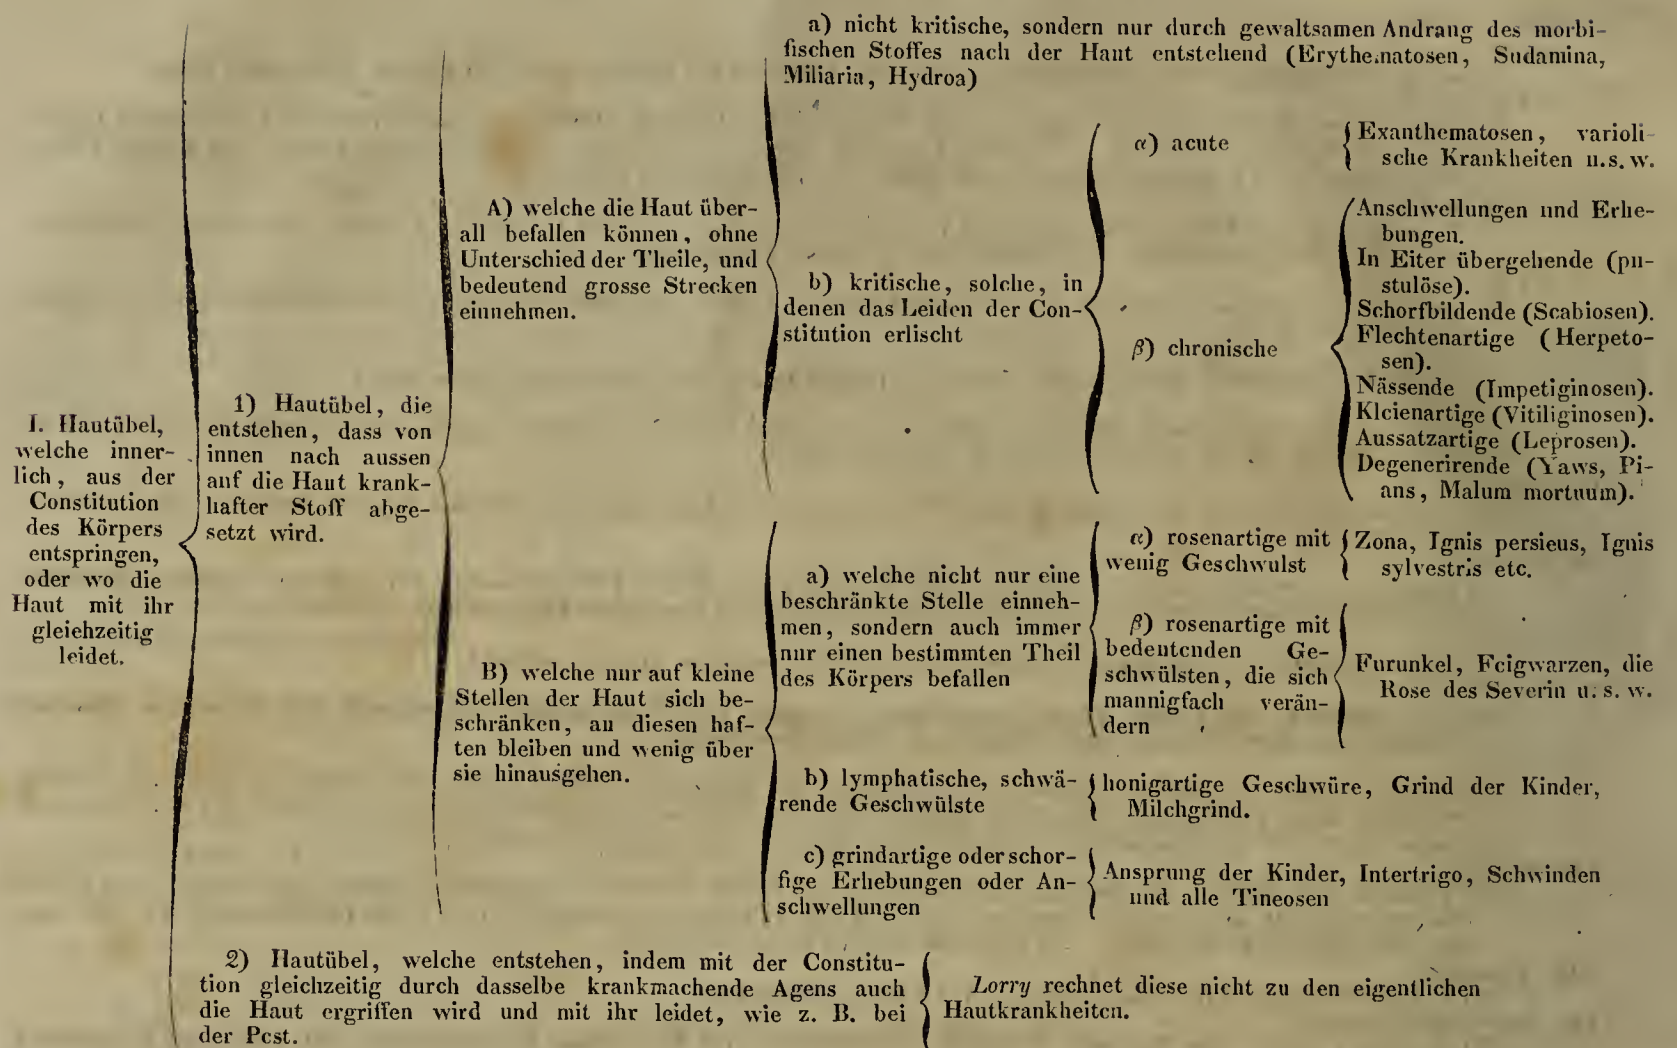 I. Hautübel,
welche inner-
lich, aus der
Constitution
des Körpers
entspringen,
oder wo die
Haut mit ihr
gleichzeitig
leidet.
1) Hautübel, die
entstehen, dass von
innen nach aussen
auf die Haut krank-
hafter Stoff abge-
setzt wird.
A) welche die Haut über-
all befallen können, ohne
Unterschied der Theile, und
bedeutend grosse Strecken
einnehmen.
a) nicht kritische, sondern nur durch gewaltsamen Andrang des morbi-
fischen Stoffes nach der Haut entstehend (Erythematosen, Sudamina,
Miliaria, Hydroa)
b) kritische, solche, in
denen das Leiden der Con-
stitution erlischt
α) acute
Exanthematosen, varioli-
sche Krankheiten u.s.w.
β) chronische
Anschwellungen und Erhe-
bungen.
In Eiter übergehende (pu-
stulöse).
Schorfbildende (Scabiosen).
Flechtenartige (Herpeto-
sen).
Nässende (Impetiginosen).
Kleienartige (Vitiliginosen).
Aussatzartige (Leprosen).
Degenerirende (Yaws, Pi-
ans, Malum mortuum).
B) welche nur auf kleine
Stellen der Haut sich be-
schränken, an diesen haf-
ten bleiben und wenig über
sie hinausgehen.
a) welche nicht nur eine
beschränkte Stelle einneh-
men, sondern auch immer
nur einen bestimmten Theil
des Körpers befallen
α) rosenartige mit
wenig Geschwulst
Zona, Ignis persicus, Ignis
sylvestris etc.
β) rosenartige mit
bedeutenden Ge-
schwülsten, die sich
mannigfach verän-
dern
Furunkel, Feigwarzen, die
Rose des Severin u. s. w.
b) lymphatische, schwä-
rende Geschwülste
honigartige Geschwüre, Grind der Kinder,
Milchgrind.
c) grindartige oder schor-
fige Erhebungen oder An-
schwellungen
Ansprung der Kinder, Intertrigo, Schwinden
und alle Tineosen
2) Hautübel, welche entstehen, indem mit der Constitu-
tion gleichzeitig durch dasselbe krankmachende Agens auch
die Haut ergriffen wird und mit ihr leidet, wie z. B. bei
der Pest.
Lorry rechnet diese nicht zu den eigentlichen
Hautkrankheiten.